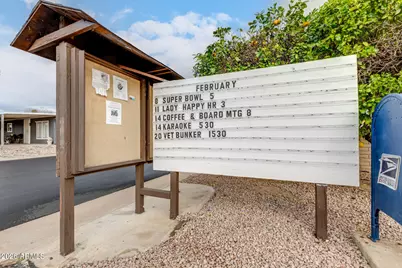 FEBRUARY
8 SUPER BOWL 5
11 LADY HAPPY HR 3
14 COFFEE & BOARD MTG 8
14 KARAOKE 530
20 VET BUNKER 1530